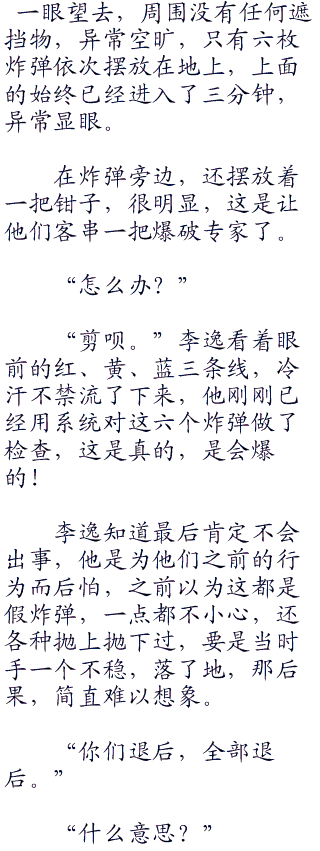 一眼望去，周围没有任何遮
挡物，异常空旷，只有六枚
炸弹依次摆放在地上，上面
的始终已经进入了三分钟，
异常显眼。
在炸弹旁边，还摆放着
一把钳子，很明显，这是让
他们客串一把爆破专家了。
“怎么办？”
“剪呗。”李逸看着眼
前的红、黄、蓝三条线，冷
汗不禁流了下来，他刚刚已
经用系统对这六个炸弹做了
检查，这是真的，是会爆
的！
李逸知道最后肯定不会
出事，他是为他们之前的行
为而后怕，之前以为这都是
假炸弹，一点都不小心，还
各种抛上抛下过，要是当时
手一个不稳，落了地，那后
果，简直难以想象。
“你们退后，全部退
后。”
“什么意思？”